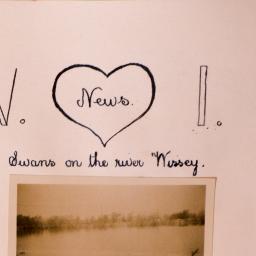 W. News. I.
Swans on the river "Wissey.